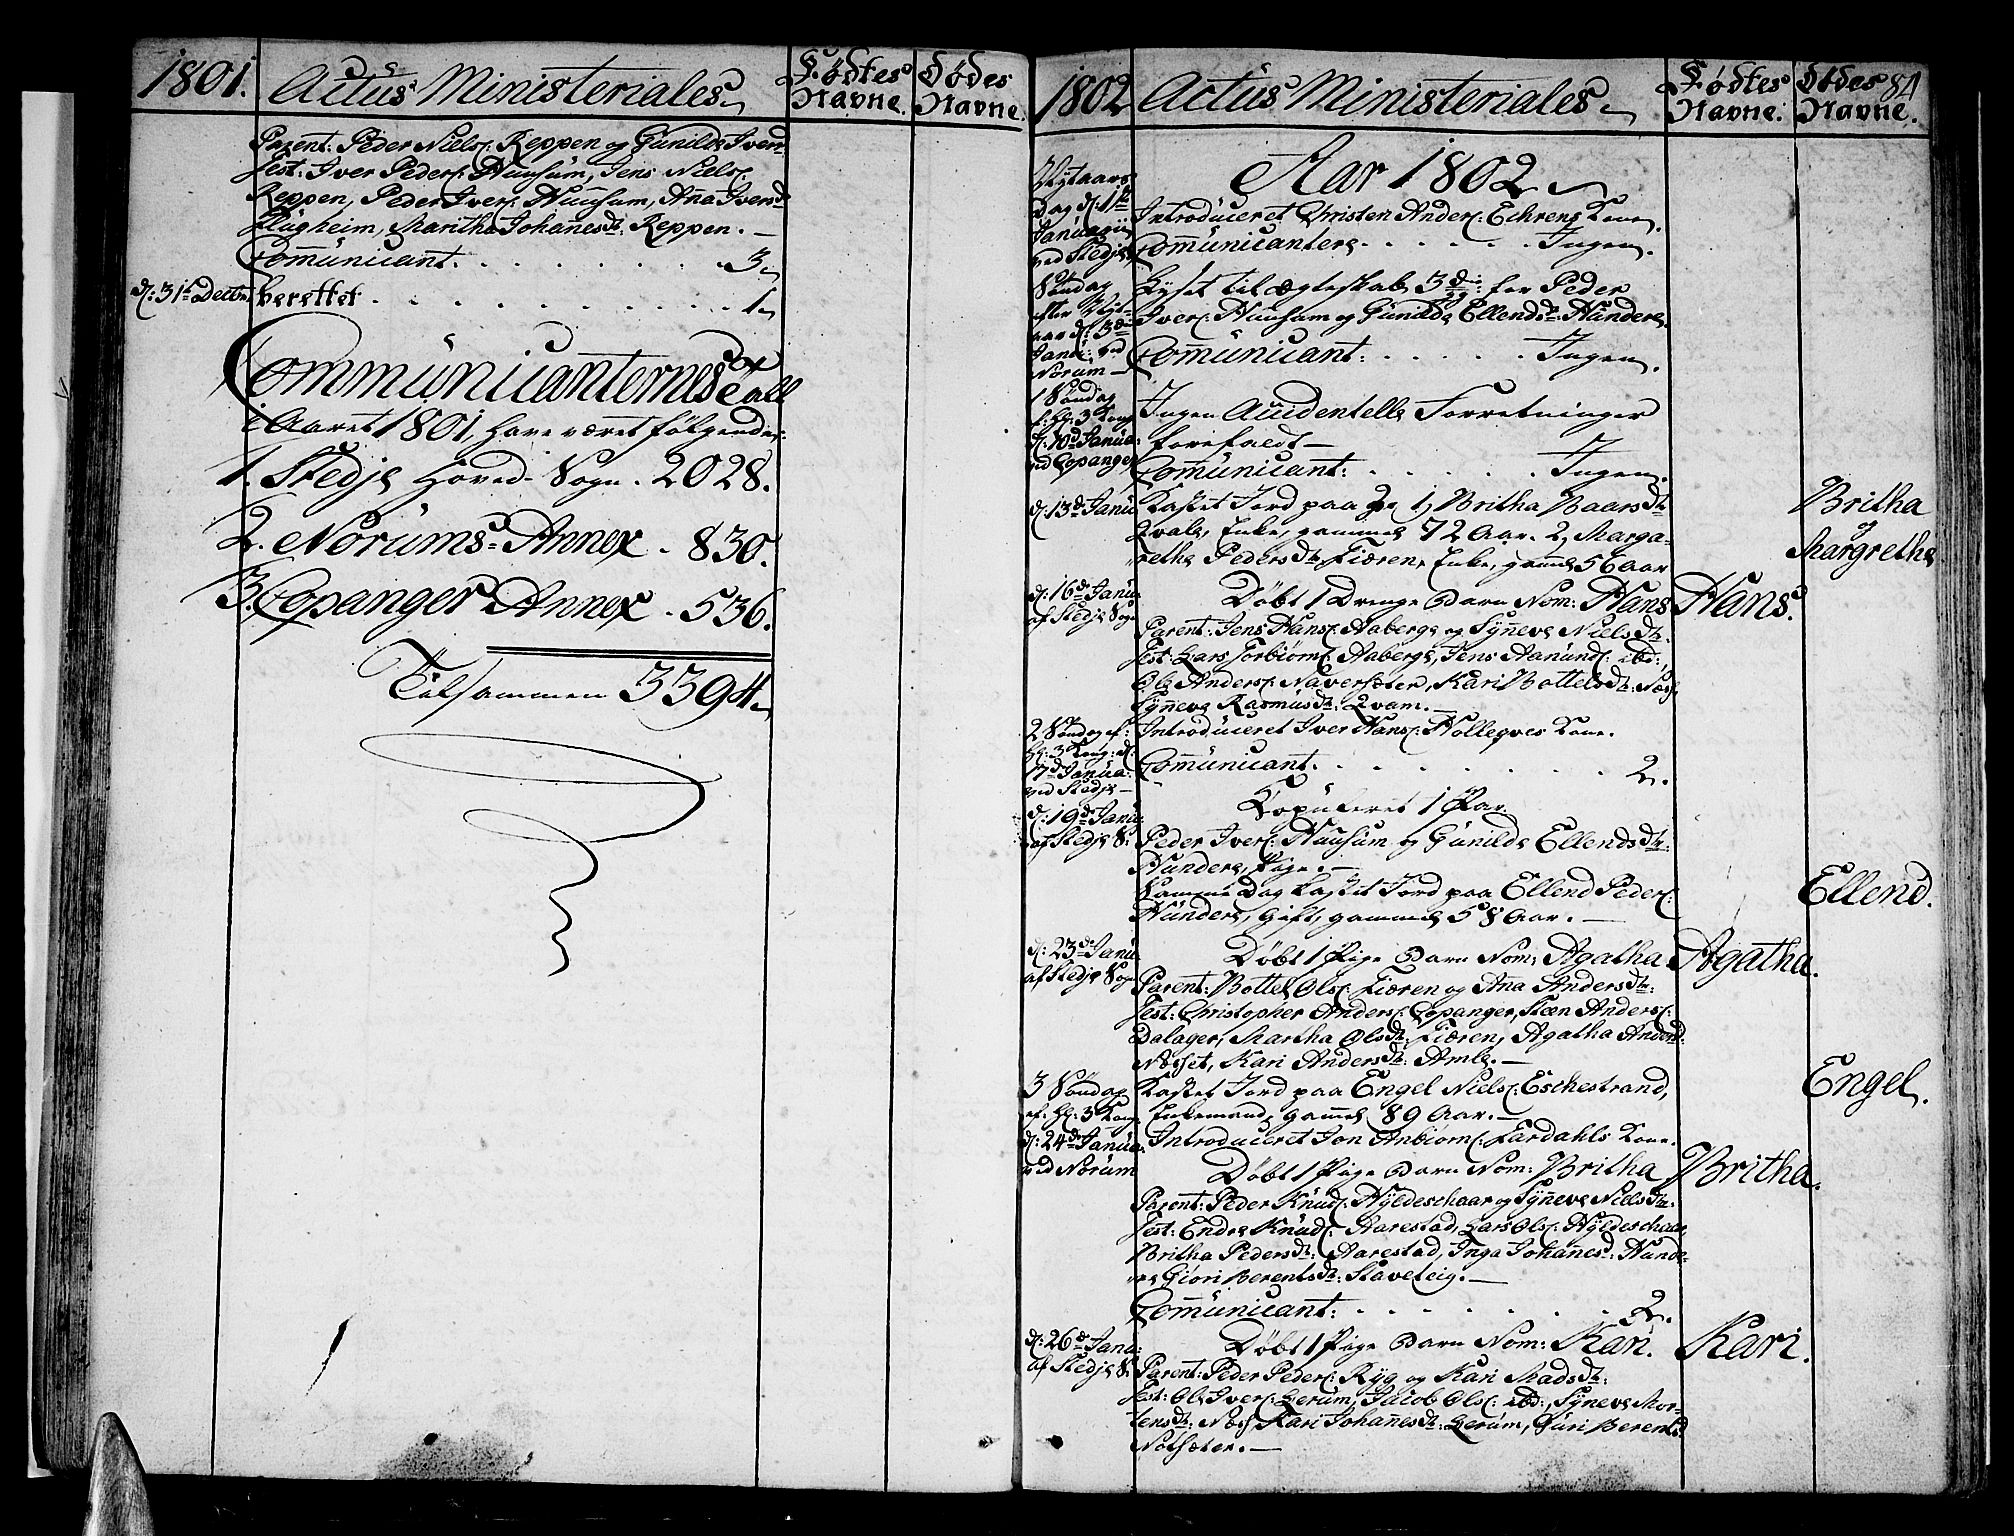 1801.
Actus Ministeriales
Fødtes Navne.
Dødes Navne.
Parent: Peder Niels: Reppen og Gunilde Ivers
Test: Iver Peders: Huusum, Jens Niels:
Reppen, Peder Ivers: Huusum, Ana Iversd:
Flugheim, Maritha Johanesdt: Reppen. —
Comunicant. . . . . . . . 3
d: 31t Decbr berettet . . . . . . . . . 1
Communicanternes Tall
i Aaret 1801, have været følgende:
1. Stedje Hoved-Sogn. 2028.
2. Norums-Annex. 830.
3. Copanger Annex. 536.
Tilsammen 3394
1802
Actus Ministeriales
Fødtes Navne.
Dødes Navne.
84
Aar 1802
Nytaars
Dag d: 1te
Januarii
ved Stedje
Introduceret Christen Anders: Eehrens Kone
Comunicantere . . . . . . Ingen.
Søndag
efter Nyt-
aar d: 3die
Janu: ved
Norum —
Lyset til ægteskab 3die for Peder
Ivers: Huusum og Gunilde Ellendsdt: Hundere.
Comunicant: . . . . . Ingen.
1 Søndag
ef: H: 3 Kong
d: 10d Janua:
ved Copanger
Ingen Accidentelle Forretninger
forefaldt —
Comunicant: . . . . . Ingen.
d: 13d Janu:
Kastet Jord paa 1, Britha Baarsdt
Qvale, Enke, gammel 72 Aar. 2, Marga-
rethe Pedersdt: Fiæren, Enke, gaml 56 Aar
Britha
og
Margrethe
d: 16d Janu:
af Stedje Sogn
Døbt 1 Drenge Barn Nom: Hans
Hans.
Parent: Jens Hans: Aaberge og Synneve Nielsdt:
Test: Lars Torbiørn: Aaberge, Jens Aanund: ibd:,
Ole Anders: Naversæter, Kari Bottelsdt: Næs,
Synneve Rasmusdt: Qvam. —
2 Søndag ef:
H: 3 Kong: d:
17d Janua:
ved Stedje —
Introduceret Iver Hans: Hollegves Kone.
Comunicant. . . . . . . . 2.
d: 19d Janu:
af Stedje S:
Copuleret 1 Par
Peder Ivers: Huusum og Gunilde Ellendsdtr:
Hundere, Pige. —
Samme Dag kastet Jord paa Ellend Peders:
Hundere, Gift, gammel 58 Aar. —
Ellend.
d: 23d Janu:
af Stedje Sogn
Døbt 1 Pige Barn Nom: Agatha
Agatha.
Parent: Bottel Ols: Fiæren og Ana Andersdtr:
Test: Christopher Anders: Copanger, Steen Anders:
Dalager, Martha Olsdt: Fiæren, Agatha Andersd:
Næset, Kari Andersdt: Amle. —
3 Søndag
ef: H: 3 Kong
d: 24d Janua:
ved Norum
Kastet Jord paa Engel Niels: Eschestrand,
Enkemand, gammel 89 Aar. —
Engel.
Introduceret Jon Anbiørn: Eardahls Kone.
Døbt 1 Pige Barn Nom: Britha
Britha.
Parent: Peder Knud: Hyldeschaar og Synneve Nielsdtr:
Test: Endre Knud: Aarestad, Lars Ols: Hyldeschaar,
Britha Pedersdt: Aarestad, Inga Johanesd: Hunde-
re Giøri Berentsdt: Staveteig. —
Comunicant: . . . . . . . 2.
d: 26d Janu:
af Stedje S:
Døbt 1 Pige Barn Nom: Kari.
Kari.
Parent: Peder Peders: Ryg og Kari Madsdt:
Test: Ole Ivers: Lerum, Jacob Ols: ibd:, Synneve Mor-
tensdt: Næs, Kari Johanesdt: Lerum, Guri Berentsd:
Notsæter. —